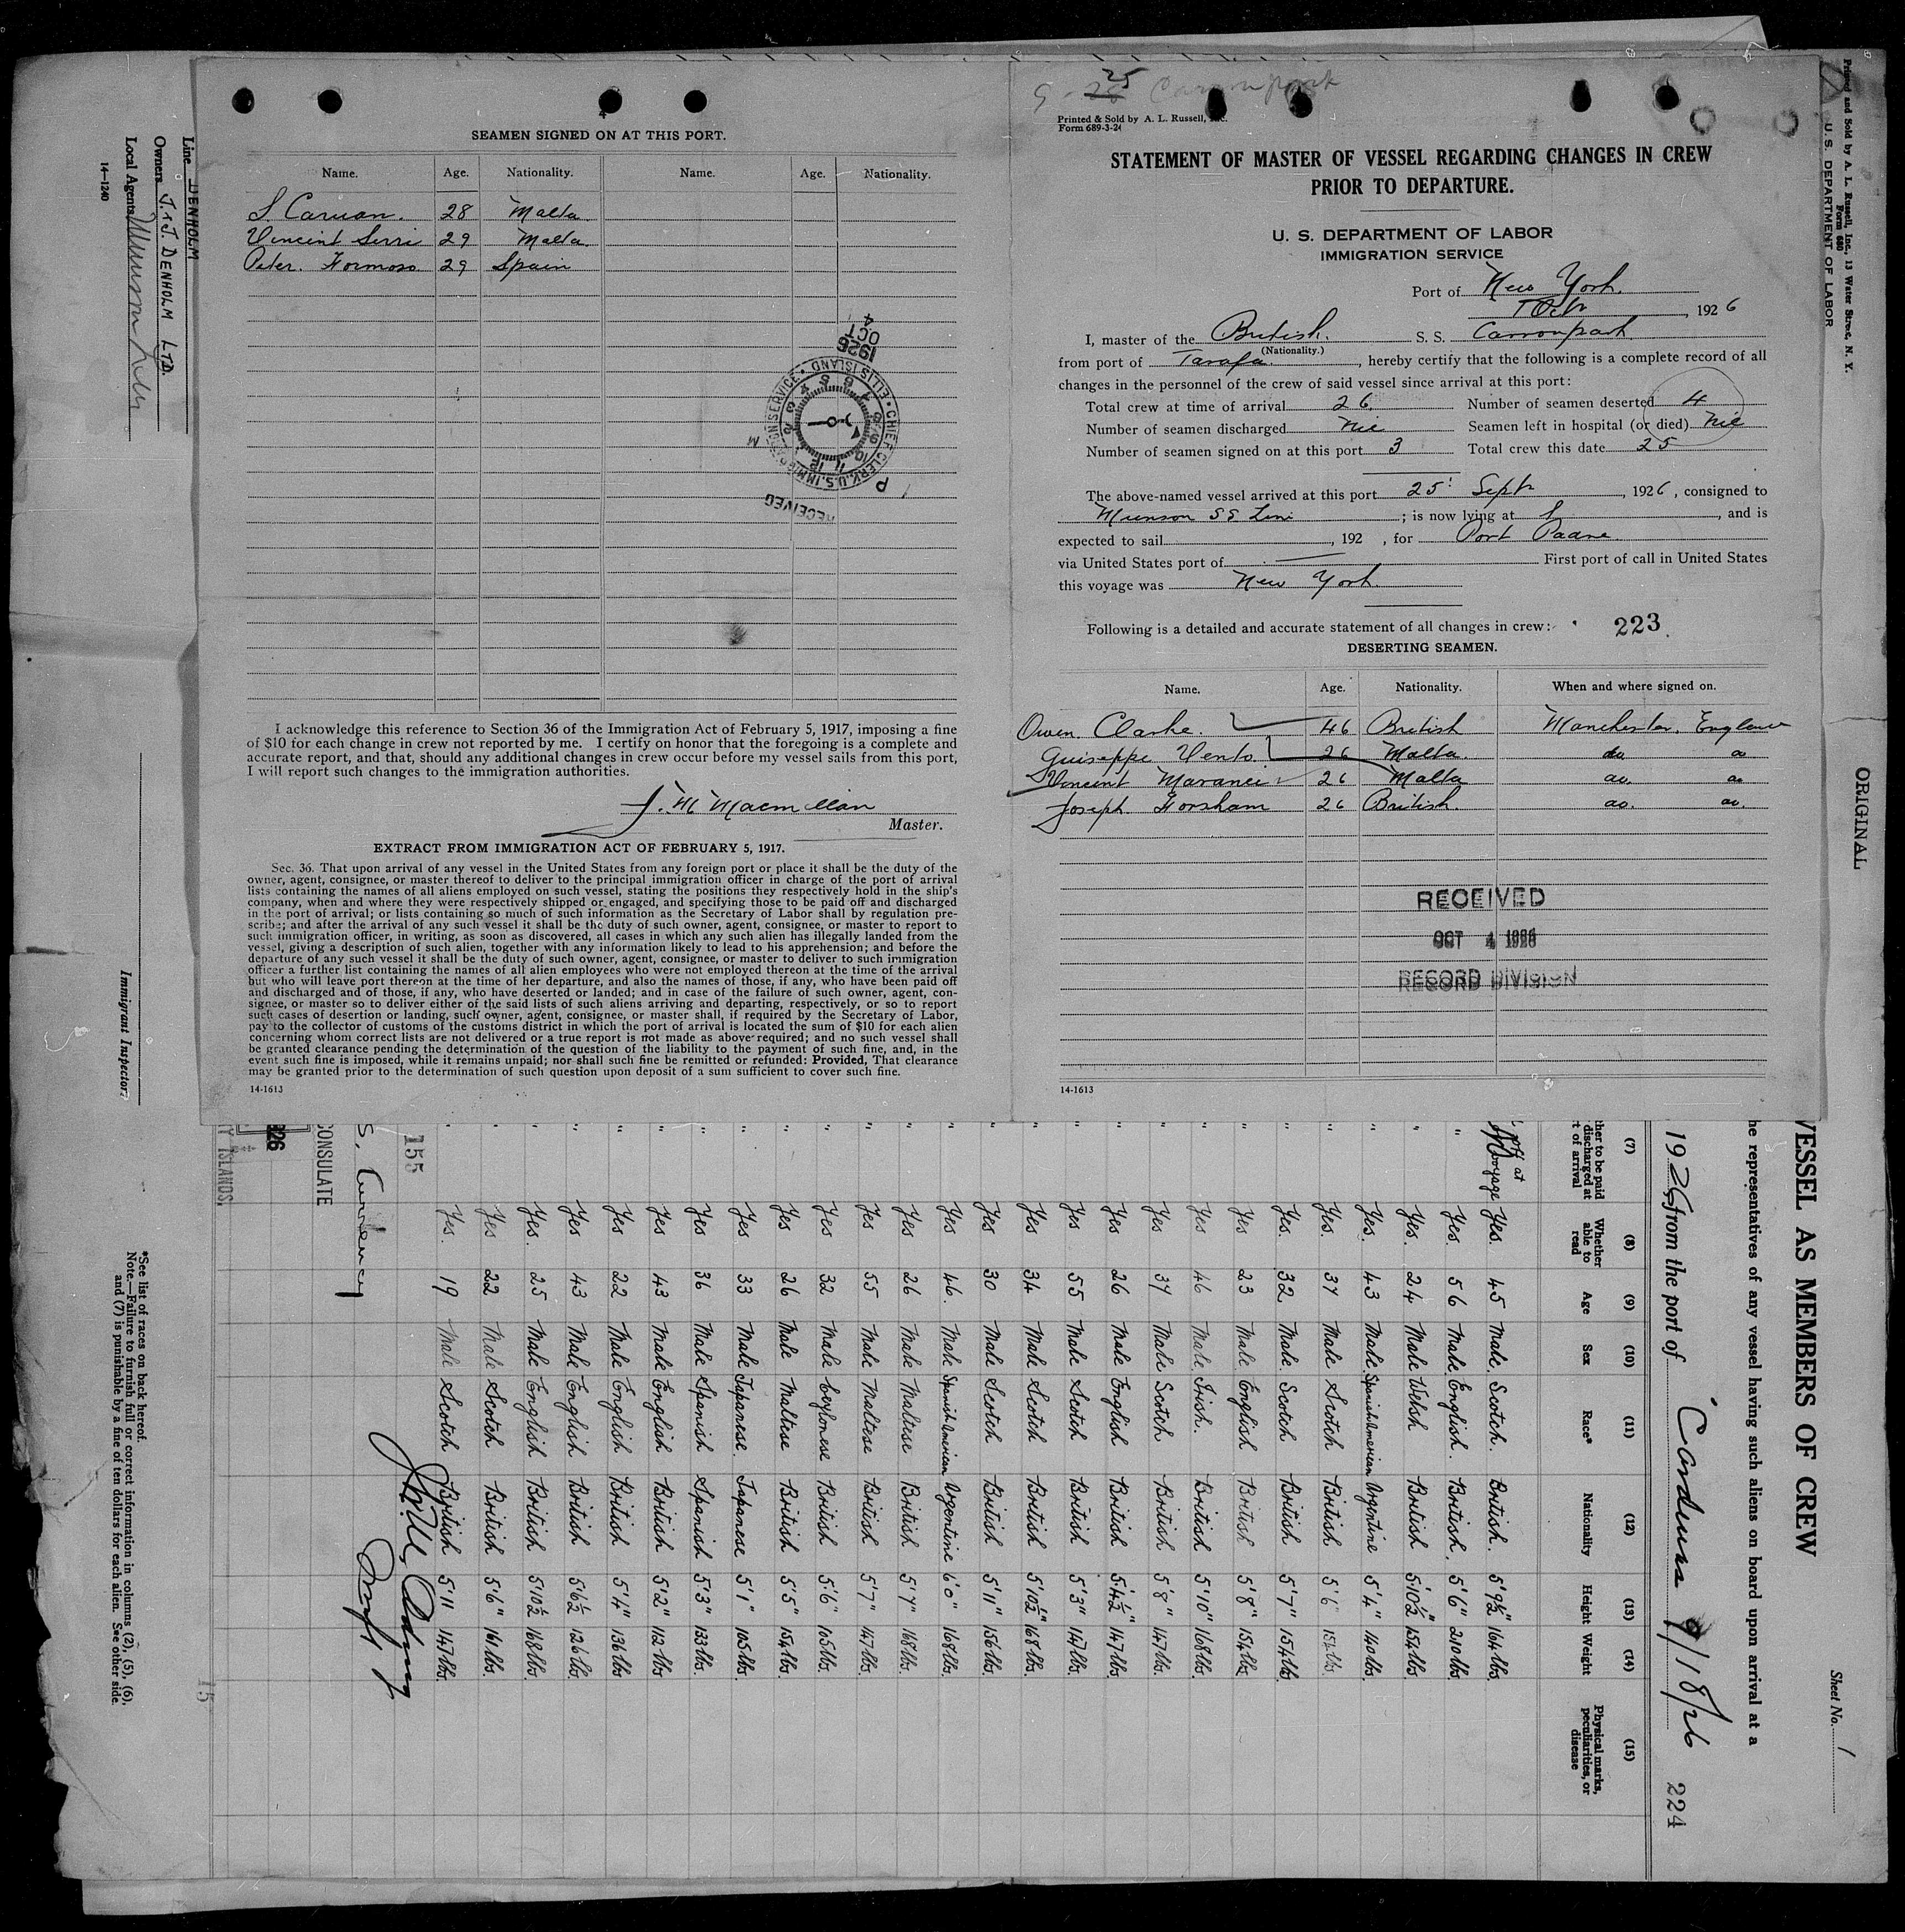 4
SEAMEN SIGNED ON AT THIS PORT.
Name. Age. Nationality. Name. Age. Nationality.
S. Caruan. 28 Malta.
Vincent Serri 29 Malta.
Peter. Formoso 29 Spain
1926
OCT
4
CHIEF CLERK, U.S. IMMIGRATION SERVICE • ELLIS ISLAND •
RECEIVED
I acknowledge this reference to Section 36 of the Immigration Act of February 5, 1917, imposing a fine
of $10 for each change in crew not reported by me. I certify on honor that the foregoing is a complete and
accurate report, and that, should any additional changes in crew occur before my vessel sails from this port,
I will report such changes to the immigration authorities.
J. M Macmillan
Master.
EXTRACT FROM IMMIGRATION ACT OF FEBRUARY 5, 1917.
Sec. 36. That upon arrival of any vessel in the United States from any foreign port or place it shall be the duty of the
owner, agent, consignee, or master thereof to deliver to the principal immigration officer in charge of the port of arrival
lists containing the names of all aliens employed on such vessel, stating the positions they respectively hold in the ship's
company, when and where they were respectively shipped or engaged, and specifying those to be paid off and discharged
in the port of arrival; or lists containing so much of such information as the Secretary of Labor shall by regulation pre-
scribe; and after the arrival of any such vessel it shall be the duty of such owner, agent, consignee, or master to report to
such immigration officer, in writing, as soon as discovered, all cases in which any such alien has illegally landed from the
vessel, giving a description of such alien, together with any information likely to lead to his apprehension; and before the
departure of any such vessel it shall be the duty of such owner, agent, consignee, or master to deliver to such immigration
officer a further list containing the names of all alien employees who were not employed thereon at the time of the arrival
but who will leave port thereon at the time of her departure, and also the names of those, if any, who have been paid off
and discharged and of those, if any, who have deserted or landed; and in case of the failure of such owner, agent, con-
signee, or master so to deliver either of the said lists of such aliens arriving and departing, respectively, or so to report
such cases of desertion or landing, such owner, agent, consignee, or master shall, if required by the Secretary of Labor,
pay to the collector of customs of the customs district in which the port of arrival is located the sum of $10 for each alien
concerning whom correct lists are not delivered or a true report is not made as above required; and no such vessel shall
be granted clearance pending the determination of the question of the liability to the payment of such fine, and, in the
event such fine is imposed, while it remains unpaid; nor shall such fine be remitted or refunded: Provided, That clearance
may be granted prior to the determination of such question upon deposit of a sum sufficient to cover such fine.
14-1613
25 Carronpark
Printed & Sold by A. L. Russell, Inc.
Form 689-3-24
STATEMENT OF MASTER OF VESSEL REGARDING CHANGES IN CREW
PRIOR TO DEPARTURE.
U. S. DEPARTMENT OF LABOR
IMMIGRATION SERVICE
Port of New York.
1 Oct, 1926
I, master of the British. S. S. Carronpark
(Nationality.)
from port of Tarafa, hereby certify that the following is a complete record of all
changes in the personnel of the crew of said vessel since arrival at this port:
Total crew at time of arrival 26. Number of seamen deserted 4
Number of seamen discharged nil Seamen left in hospital (or died) nil
Number of seamen signed on at this port 3 Total crew this date 25
The above-named vessel arrived at this port 25: Sept, 1926, consigned to
Munson SS Line; is now lying at, and is
expected to sail, 192 , for Port Padre.
via United States port of First port of call in United States
this voyage was New York.
Following is a detailed and accurate statement of all changes in crew: 223
DESERTING SEAMEN.
Name. Age. Nationality. When and where signed on.
Owen. Clarke. 46 British Manchester. England
Guiseppe Vento. 26 Malta. do. do
Vincent 26 Malta do. do
Joseph. Horsham 26 British. do. do.
RECEIVED
OCT 4 1926
RECORD DIVISION
14-1613
Line DENHOLM
Owners J. & J. DENHOLM LTD.
Local Agents Munson Line
14—1240
Immigrant Inspector.
*See list of races on back hereof.
Note.—Failure to furnish full or correct information in columns (2), (5), (6),
and (7) is punishable by a fine of ten dollars for each alien. See other side.
Printed and Sold by A. L. Russell, Inc., 13 Water Street, N. Y.
Form 680
U. S. DEPARTMENT OF LABOR
ORIGINAL
Sheet No. 1
VESSEL AS MEMBERS OF CREW
he representatives of any vessel having such aliens on board upon arrival at a
1926, from the port of Cardenas 9/18/26 224
(7) (8) (9) (10) (11) (12) (13) (14) (15)
ther to be paid discharged at t of arrival Whether able to read Age Sex Race* Nationality Height Weight Physical marks, peculiarities, or disease
off at voyage Yes. 45 Male. Scotch. British. 5'9½ 164 lbs
" Yes. 56 Male English. British. 5'6" 210 lbs
" Yes. 24 Male Welsh British 5'10½" 154 lbs.
" Yes. 43 Male Spanish American Argentine 5'4" 140 lbs.
" Yes. 37 Male Scotch British 5'6 154 lbs.
" Yes. 32 Male. Scotch British 5'7" 154 lbs
" Yes 23 Male English British 5'8" 154 lbs
" Yes 46 Male. Irish. British 5'10" 168 lbs.
" Yes 37 Male Scotch British 5'8" 147 lbs.
" Yes 26 Male English British 5'4½" 147 lbs
" Yes 55 Male Scotch British 5'3" 147 lbs
" Yes 34 Male Scotch British 5'10½" 168 lbs.
" Yes 30 Male Scotch British 5'11" 156 lbs.
" Yes 46. Male Spanish American Argentine 6'0" 168 lbs.
" Yes 26 Male Maltese British 5'7" 168 lbs.
" Yes 55 Male Maltese British 5'7" 147 lbs.
" Yes 32 Male Ceylonese British 5'6" 105 lbs.
" Yes 26 Male Maltese British 5'5" 154 lbs.
" Yes 33 Male Japanese. Japanese 5'1" 105 lbs.
" Yes 36 Male Spanish Spanish 5'3" 133 lbs.
" Yes 43 Male English British 5'2" 112 lbs
" Yes 22 Male English British 5'4" 136 lbs
" Yes 43 Male English British 5'6½ 126 lbs.
" Yes. 25 Male English British 5'10½ 168 lbs.
" Yes 22 Male Scotch British 5'6" 161 lbs.
" Yes. 19 Male Scotch British 5'11 147 lbs.
155
CONSULATE
926
Y ISLANDS.
15